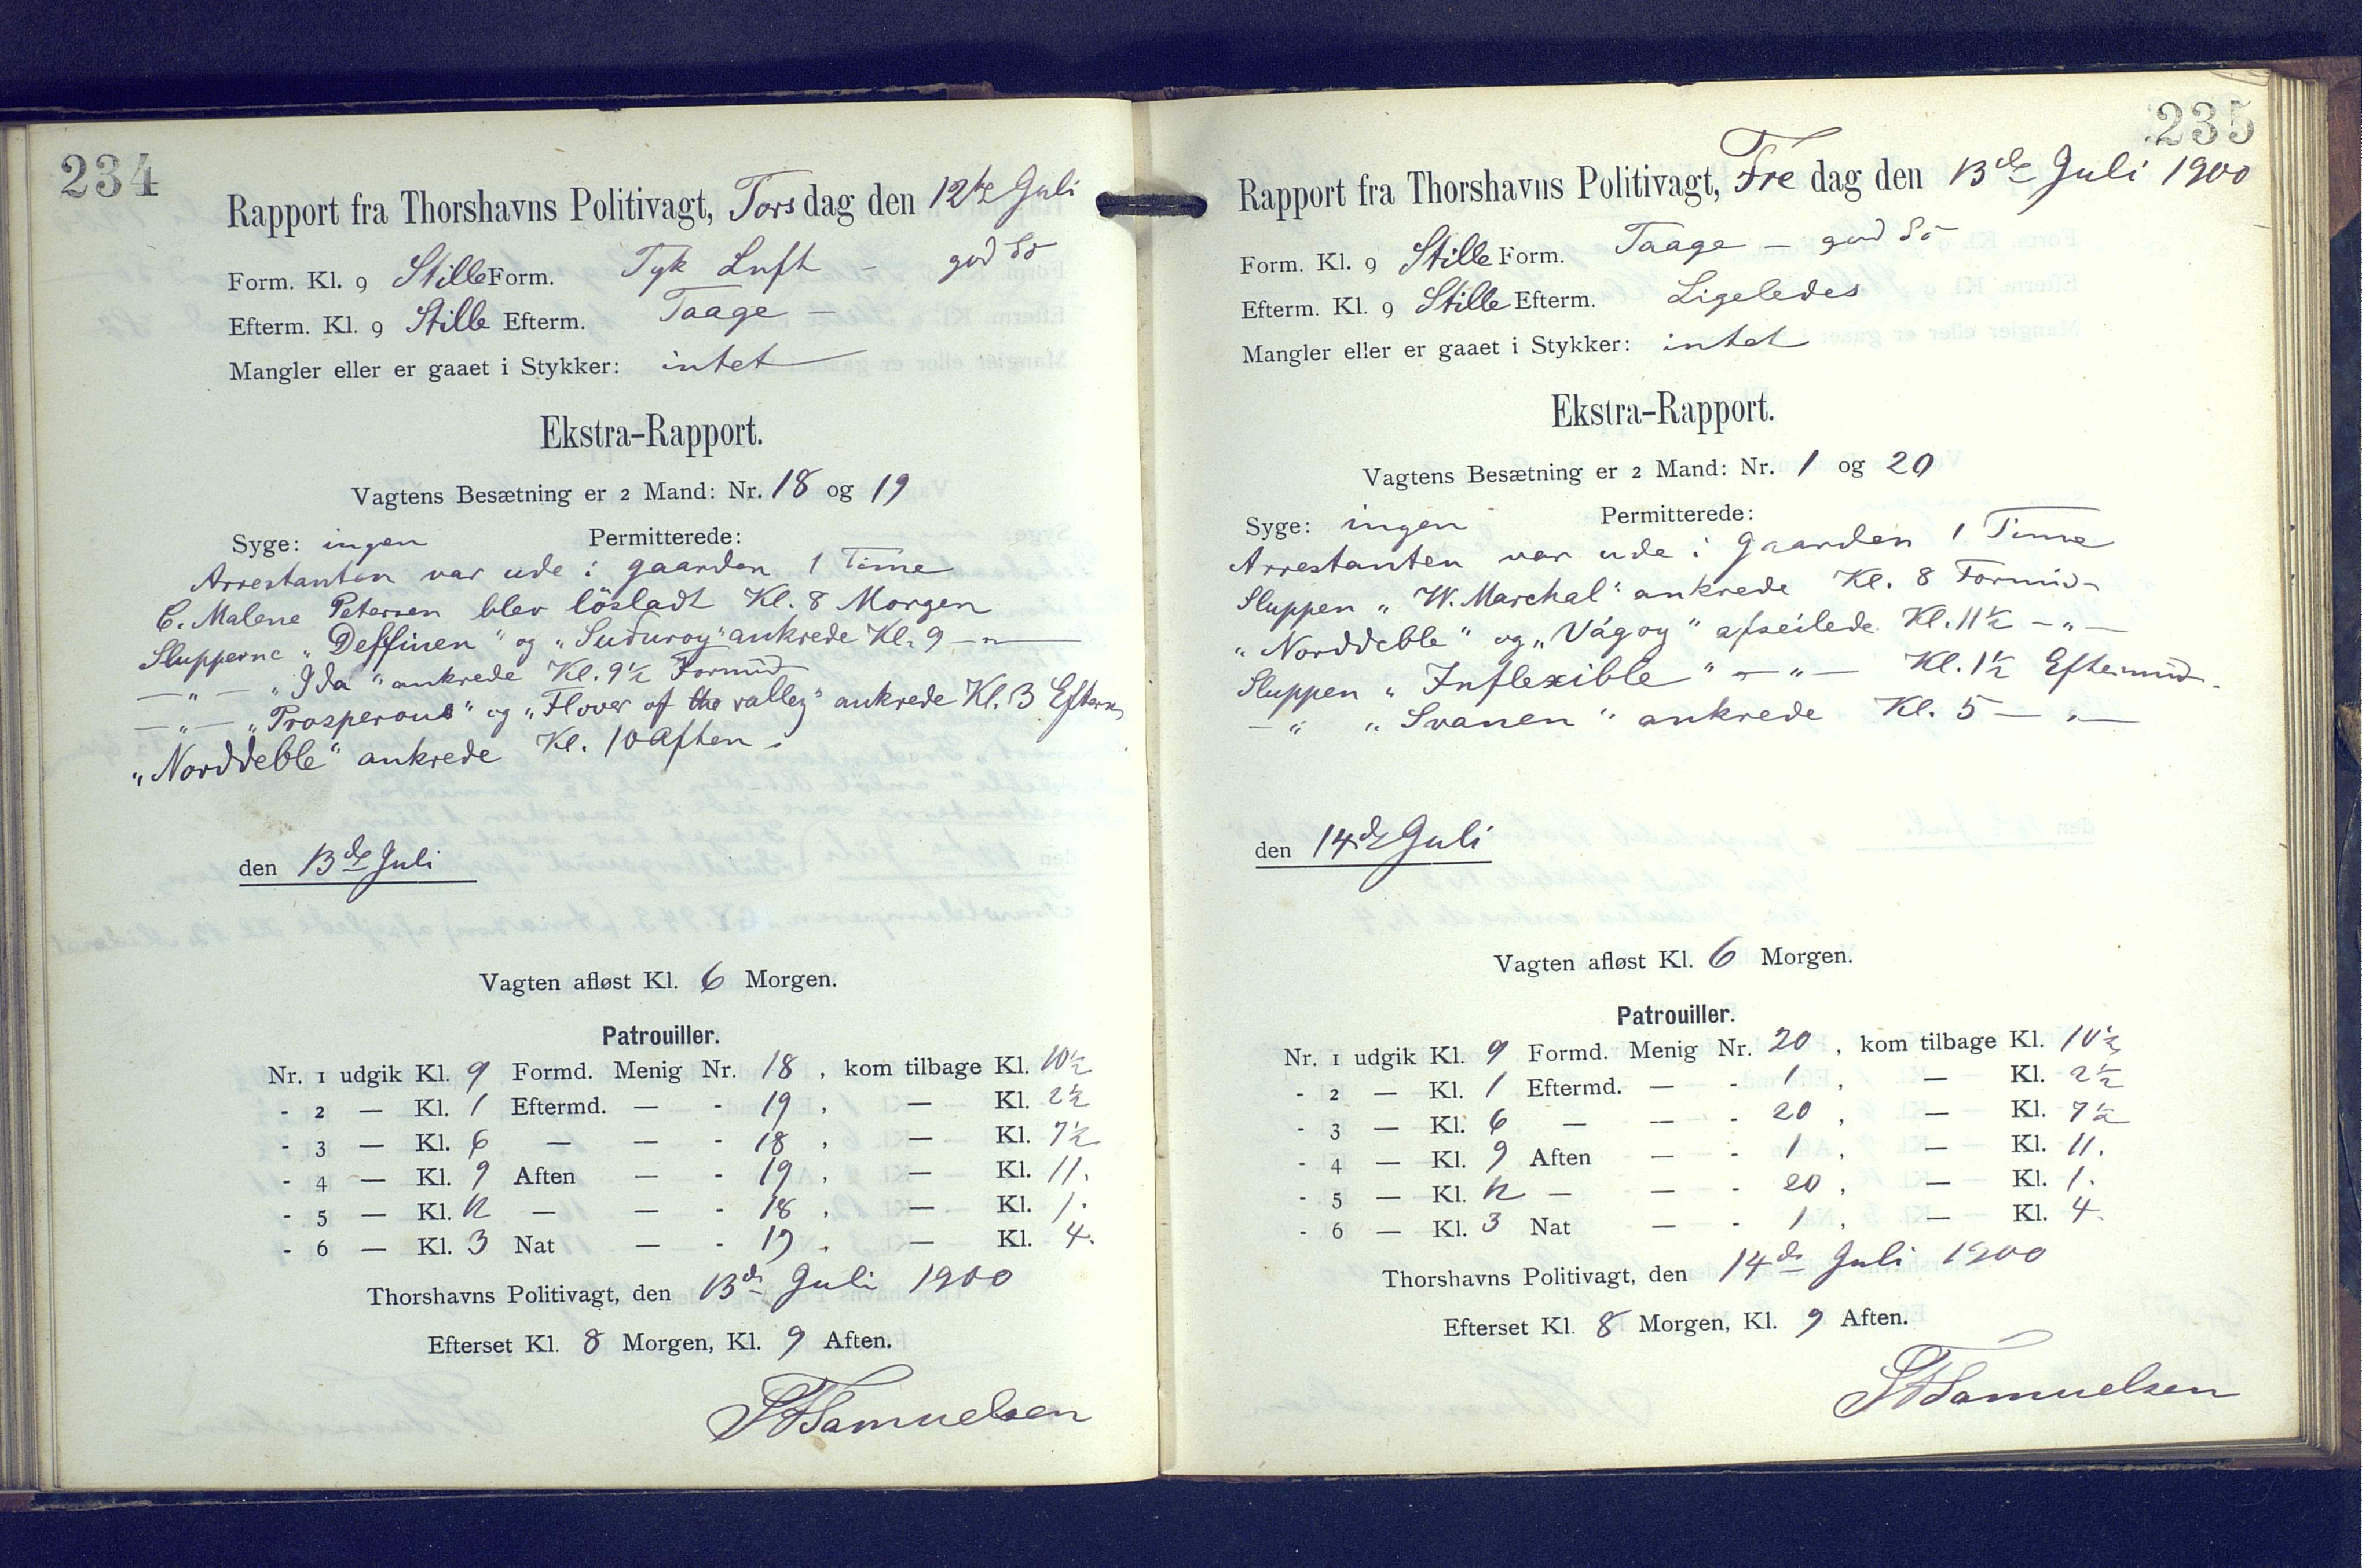 234
Rapport fra Thorshavns Politivagt, Torsdag den 12te Juli
Form. Kl. 9 Stille Form. Tyk Luft — god Sö
Efterm. Kl. 9 Stille Efterm. Taage —
Mangler eller er gaaet i Stykker: intet
Ekstra-Rapport.
Vagtens Besætning er 2 Mand: Nr. 18 og 19
Syge: ingen Permitterede:
Arrestanten var ude i gaarden 1 Time
C. Malene Petersen blev lösladt Kl. 8 Morgen
Slupperne „Deffinen" og „Suduroy" ankrede Kl. 9 — „ —
— „ — „Ida" ankrede Kl. 9½ Formid
— „ — „Prosperous" og „Flover of the valley" ankrede Kl. 3 Efterm
„Norddeble" ankrede Kl. 10 Aften.
den 13de Juli
Vagten afløst Kl. 6 Morgen.
Patrouiller.
Nr. 1 udgik Kl. 9 Formd. Menig Nr. 18, kom tilbage Kl. 10½
- 2 — Kl. 1 Eftermd. — - 19, — Kl. 2½
- 3 — Kl. 6 — — - 18, — Kl. 7½
- 4 — Kl. 9 Aften — - 19, — Kl. 11.
- 5 — Kl. 12 — — - 18, — Kl. 1.
- 6 — Kl. 3 Nat — - 19, — Kl. 4.
Thorshavns Politivagt, den 13de Juli 1900
Efterset Kl. 8 Morgen, Kl. 9 Aften.
Samuelsen
235
Rapport fra Thorshavns Politivagt, Fredag den 13de Juli 1900
Form. Kl. 9 Stille Form. Taage — god Sö
Efterm. Kl. 9 Stille Efterm. Ligeledes
Mangler eller er gaaet i Stykker: intet
Ekstra-Rapport.
Vagtens Besætning er 2 Mand: Nr. 1 og 20
Syge: ingen Permitterede:
Arrestanten var ude i gaarden 1 Time
Sluppen „W. Marchal" ankrede Kl. 8 Formid
„Norddeble" og „Vágoy" afseilede Kl. 11½ — „ —
Sluppen „Inflexible" — „ — Kl. 1½ Eftermid.
— „ „Svanen" ankrede Kl. 5 — „ —
den 14de Juli
Vagten afløst Kl. 6 Morgen.
Patrouiller.
Nr. 1 udgik Kl. 9 Formd. Menig Nr. 20, kom tilbage Kl. 10½
- 2 — Kl. 1 Eftermd. — - 1, — Kl. 2½
- 3 — Kl. 6 — — - 20, — Kl. 7½
- 4 — Kl. 9 Aften — - 1, — Kl. 11.
- 5 — Kl. 12 — — - 20, — Kl. 1.
- 6 — Kl. 3 Nat — - 1, — Kl. 4.
Thorshavns Politivagt, den 14de Juli 1900
Efterset Kl. 8 Morgen, Kl. 9 Aften.
Samuelsen